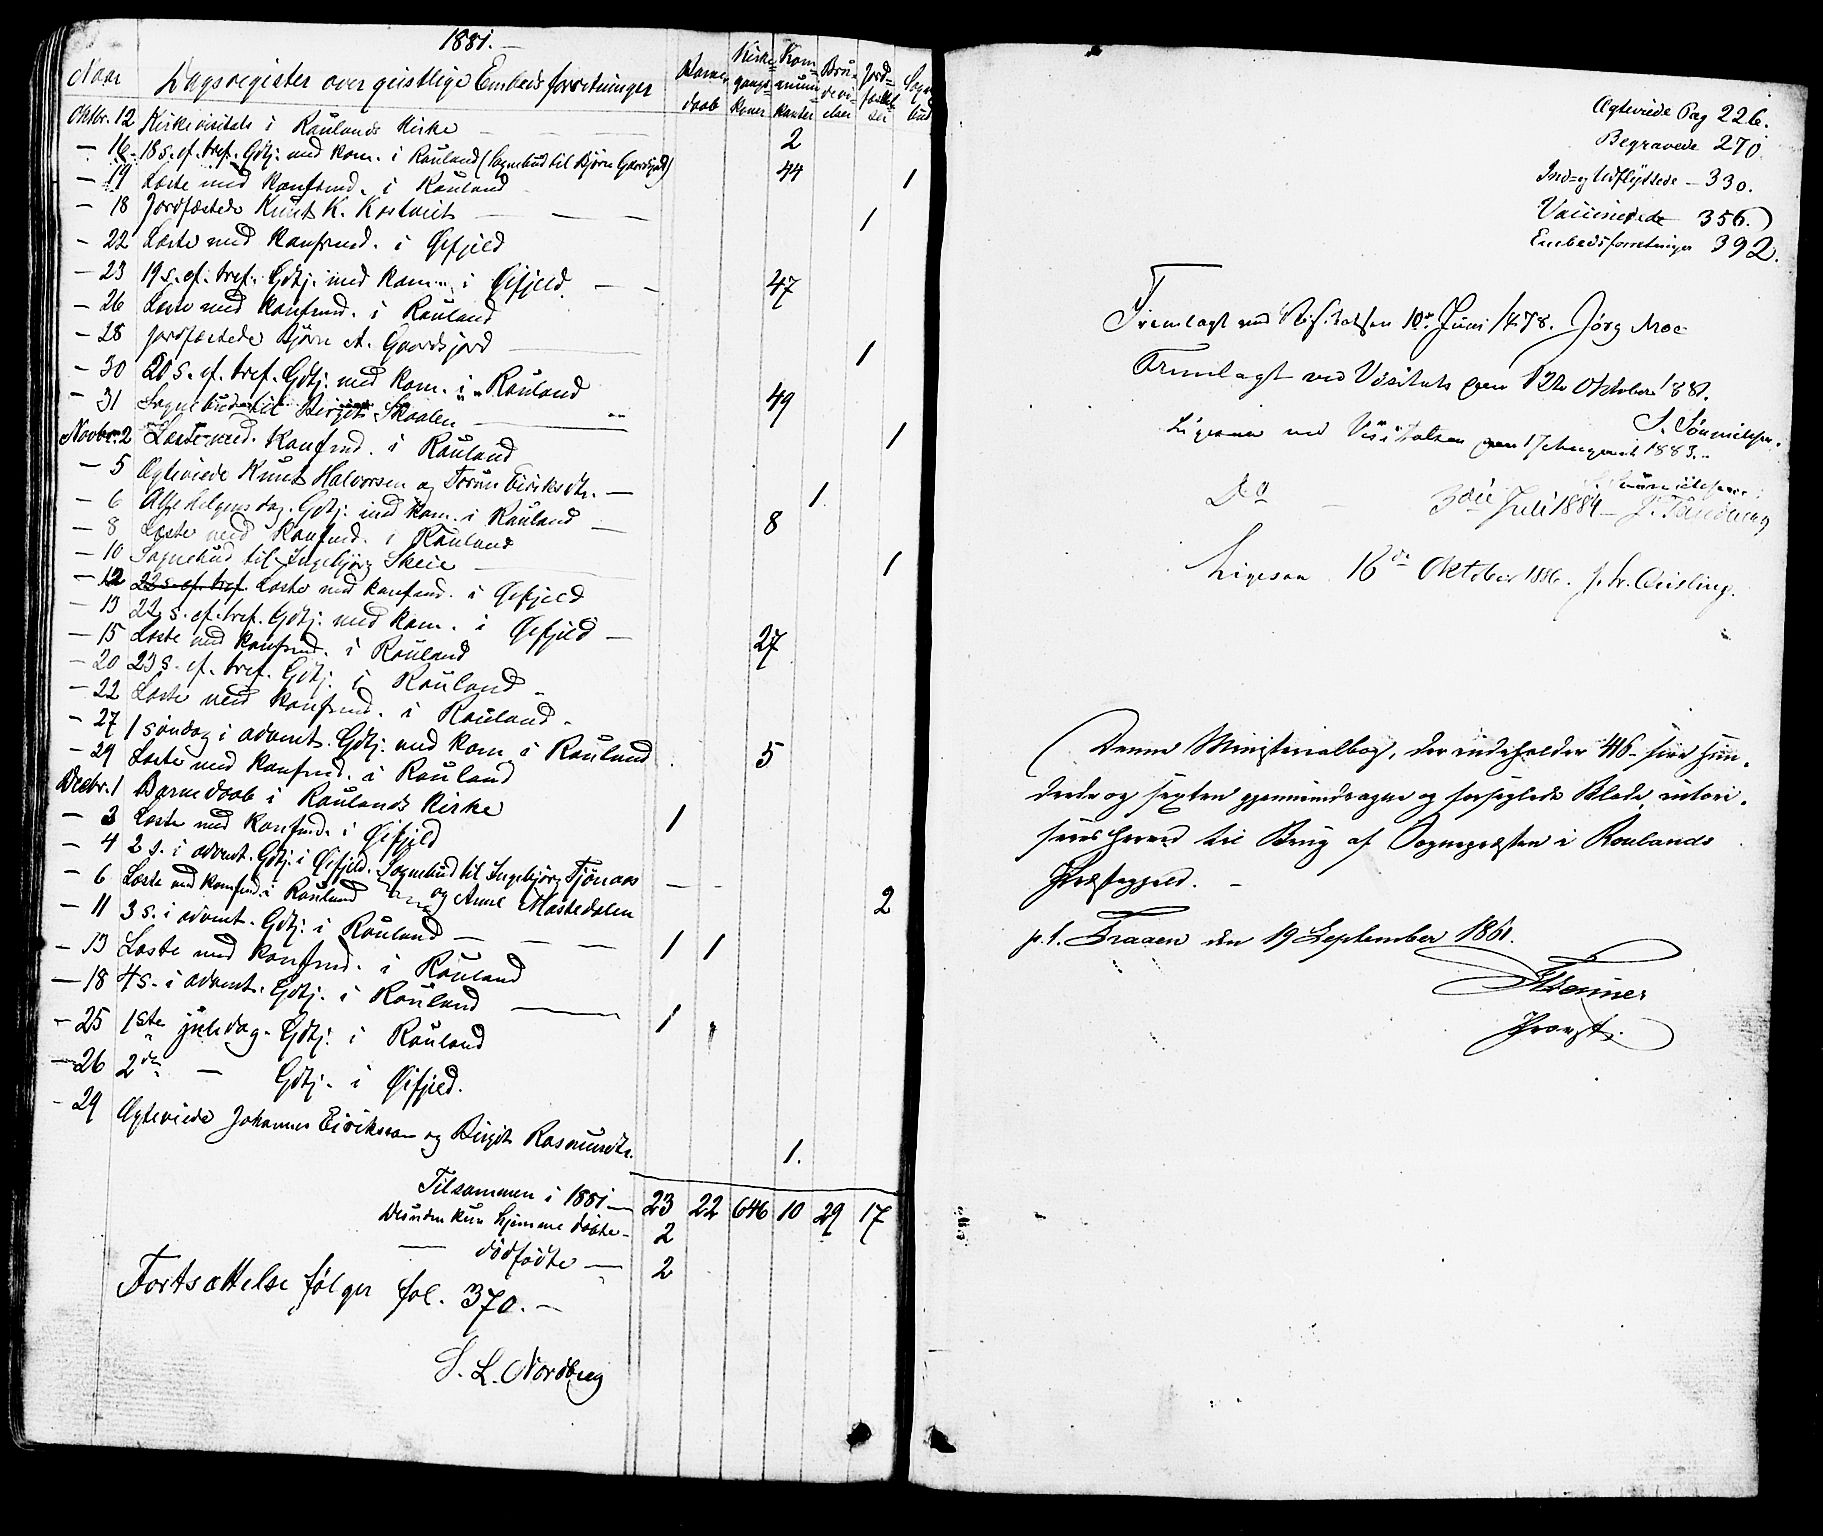 1881. —
Naar Dagsregister over geistlige Embedsforretninger Barne- daab Kirke- gangs- koner Kom- muni- kanter Bru- devi- elser Jord- fæstel- ser Sogne bud
Oktbr. 12 Kirkevisitats i Raulands Kirke — — — 2
— 16 18 s. ef. tref. Gdtj. med kom. i Rauland (Sognebud til Bjørn Gaardsjord) 44 1
— 19 Læste med konfirmd. i Rauland
— 18 Jordfæstede Knut K. Kostveit — — — 1
— 22 Læste med konfirmd. i Øifjeld
— 23 19 s. ef. tref. Gdtj. med kom. i Øifjeld — — 47
— 26 Læste med konfirmd. i Rauland
— 28 Jordfæstede Bjørn A. Gaardsjord — 1
— 30 20 s. ef. tref. Gdtj. med kom. i Rauland 49
— 31 Sognebud til Birgit Skaalen — 1
Novbr. 2 Læste med konfmd. i Rauland
— 5 Ægteviede Knut Halvorsen og Torun Eiriksdtr. — 1
— 6 Allehelgensdag. Gdtj. med kom. i Rauland — 8
— 8 Læste med konfmd. i Rauland
— 10 Sognebud til Ingebjørg Skeie — 1
— 12 22 s. ef. tref. Læste med konfmd. i Øifjeld
— 13 22 s. ef. tref. Gdtj. med kom. i Øifjeld — 27
— 15 Læste med konfmd. i Rauland
— 20 23 s. ef. tref. Gdtj. i Rauland —
— 22 Læste med konfmd. i Rauland —
— 27 1 søndag i advent. Gdtj. med kom i Rauland 5
— 29 Læste med konfmd. i Rauland
Decbr. 1 Barnedaab i Raulands Kirke 1
— 3 Læste med konfmd. i Øifjeld
— 4 2 s. i advent. Gdtj. i Øifjeld. Sognebud til Ingebjørg Tjønaas — —
og Anne Mostedalen 2
— 6 Læste med konfmd. i Rauland
— 11 3 s. i advent. Gdtj. i Rauland — — — 1 1
— 13 Læste med konfmd. i Rauland
— 18 4 s. i advent. Gdtj. i Rauland — 1
— 25 1ste juledag. Gdtj. i Rauland
— 26 2den — Gdtj. i Øifjeld.
— 29 Ægteviede Johannes Eirikson og Birgit Rasmundtr. 1.
Tilsammen i 1881 — 23 22 646 10 29 17
Desuden kun hjemme døbte — 2
— dødfødte — 2
Fortsættelse følger fol. 370. —
S. L. Nordberg
Ægteviede Pag 226.
Begravede 270
Ind- og Udflyttede — 330.
Vaccinerede 356.)
Embedsforretninger 392.
Fremlagt ved Visitatsen 10de Juni 1878. Jørg Moe
Fremlagt ved Visitats den 12te Oktober 1881.
S. Sønnichsen.
Ligesaa ved Visitatsen den 17 August 1883.
Sønnichsen
Do — 3die Juli 1884 — J. Tandberg
Ligesaa 16de Oktober 1886. J. N. Qvisling.
Denne Ministerialbog, der indeholder 416 — fire hun-
drede og sexten gjennemdragne og forseglede Blade, autori-
seres herved til Brug af Sognepræsten i Raulands
Præstegjeld. —
p. t. Fraaen den 19 September 1861.
Provst.